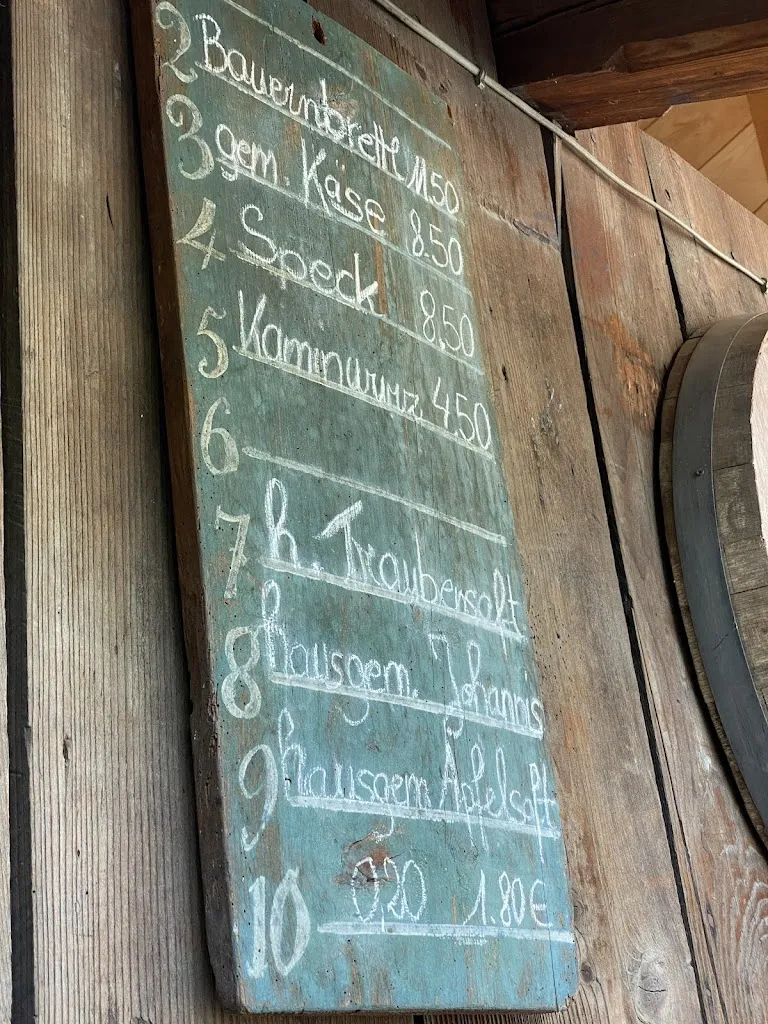 2 Bauernbrettl 11.50
3 gem. Käse 8.50
4 Speck 8.50
5 Kaminwurz 4.50
6
7 h. Traubensaft
8 hausgem. Johannis
9 hausgem Apfelsaft
10 0,20 1.80€